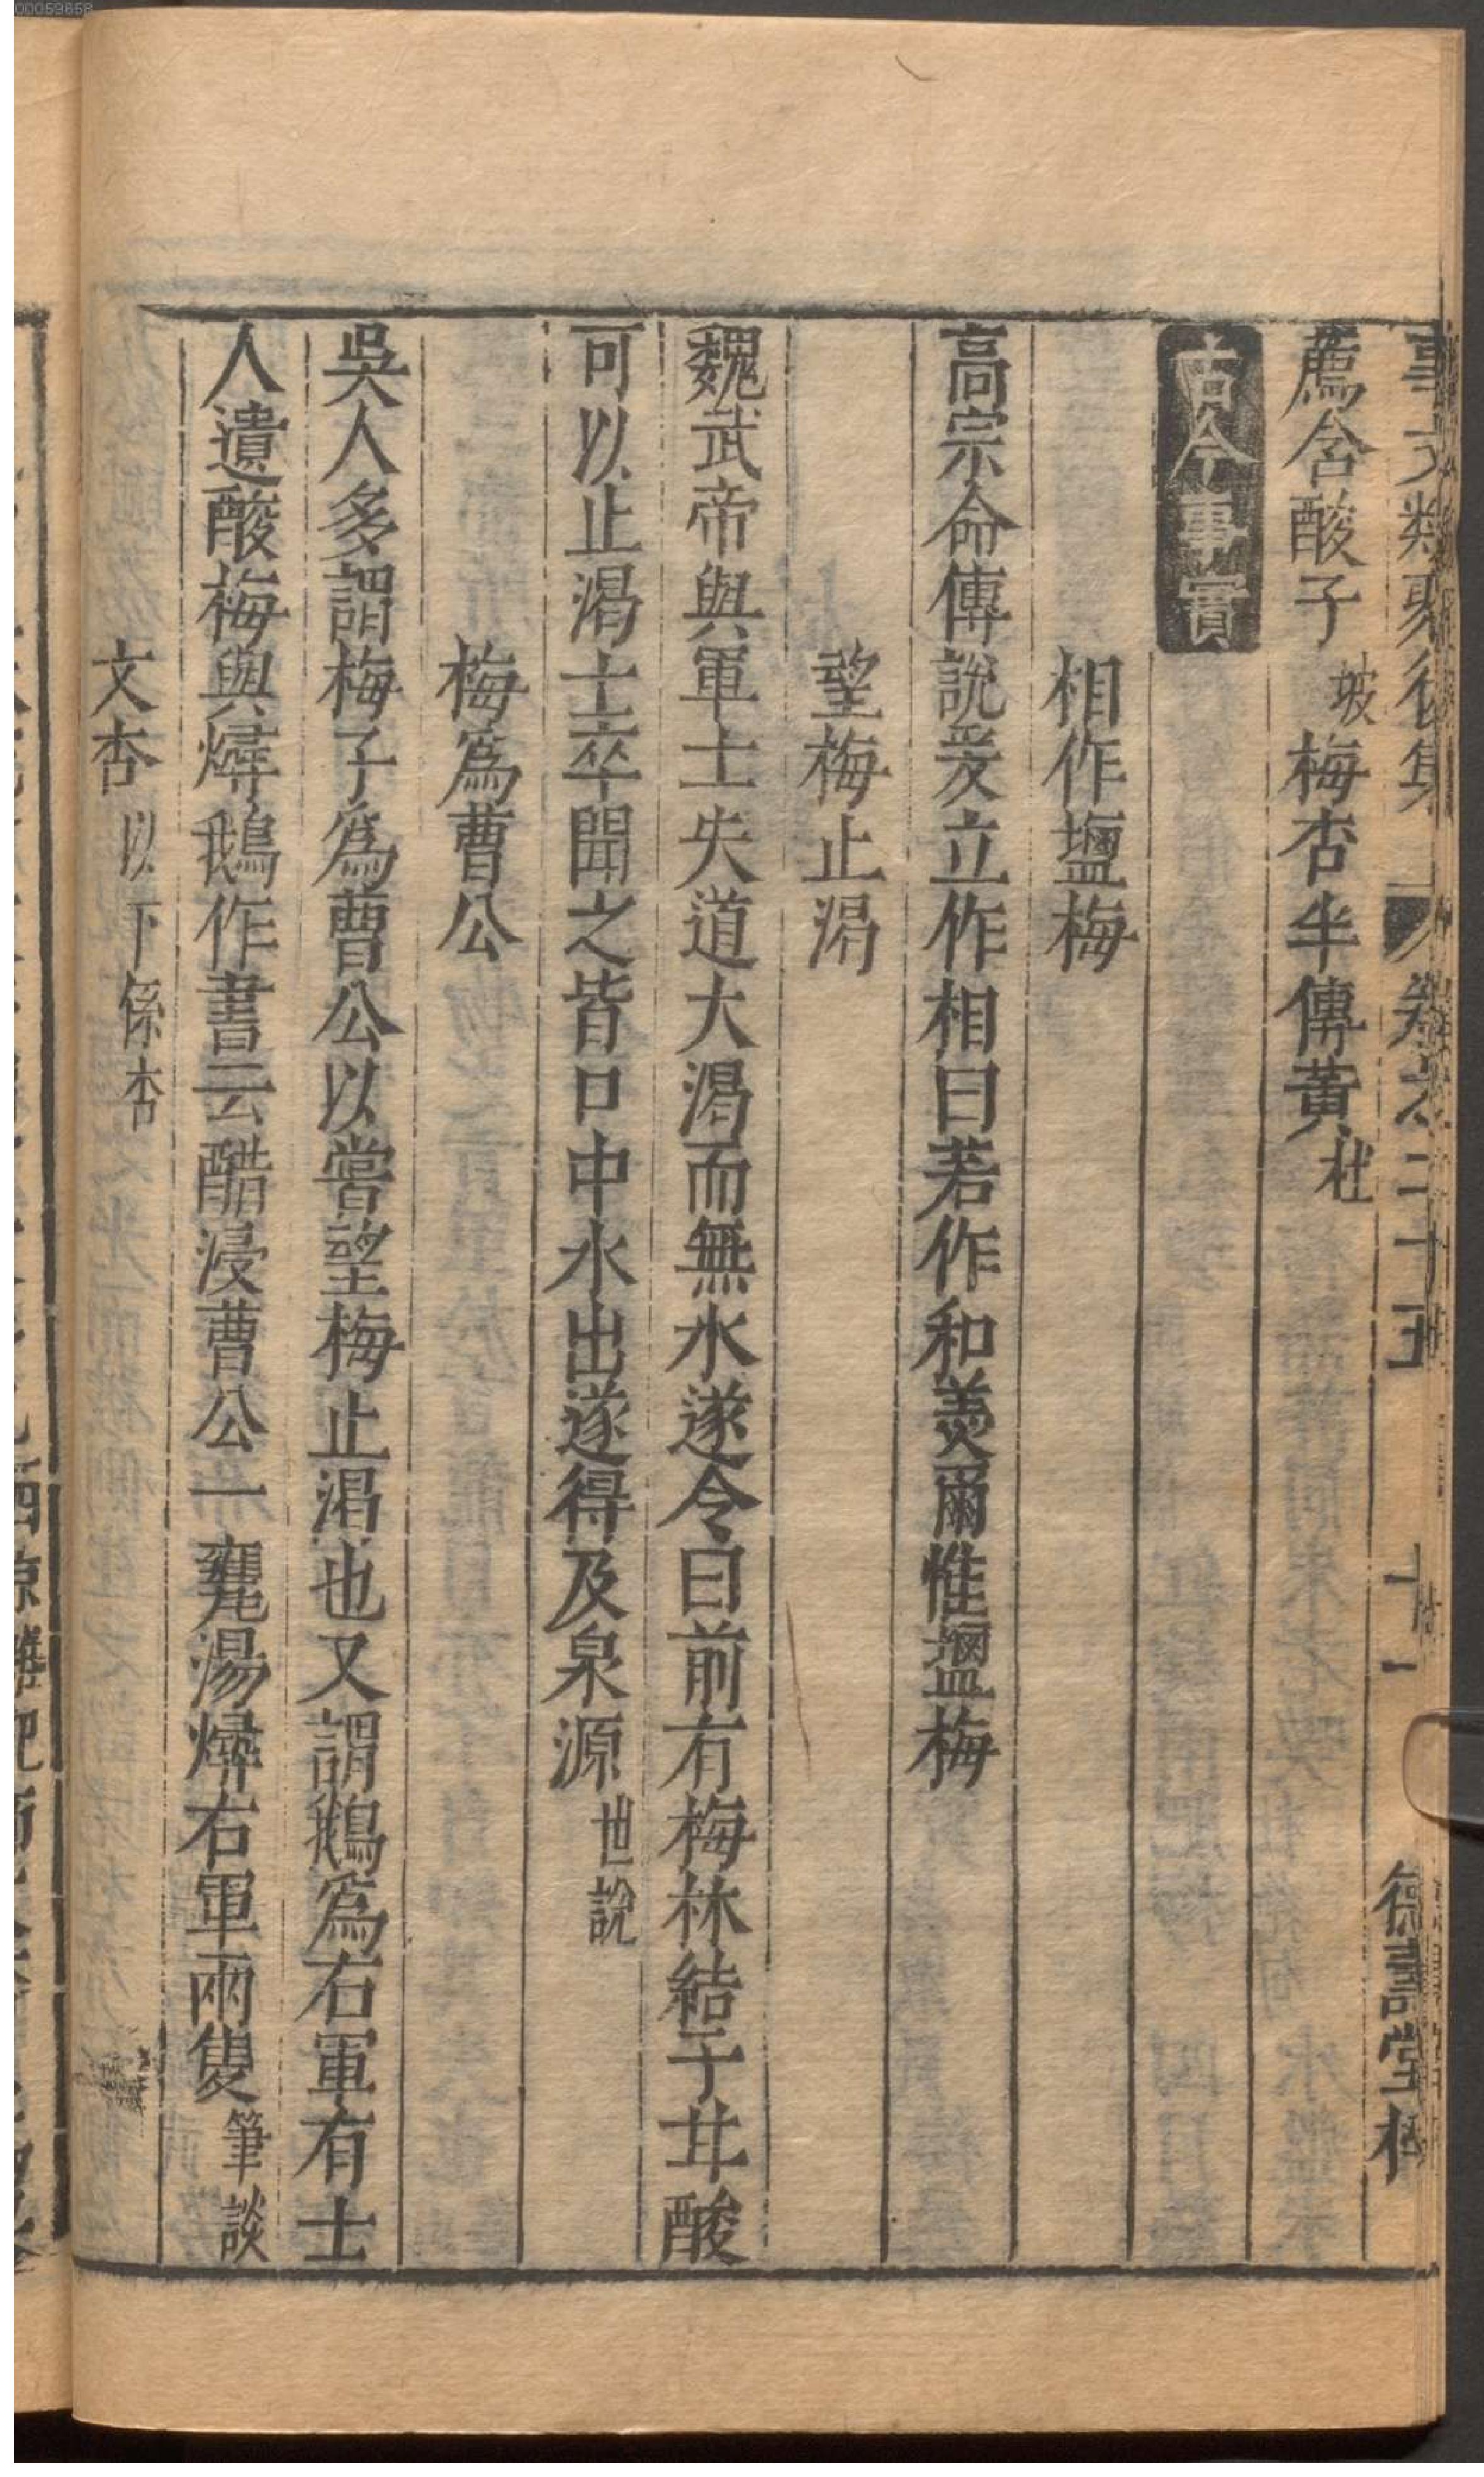 00059658
事文類聚後集 卷之二十五 十一 德壽堂梓
薦含酸子 坡 梅杏半傳黃 杜
古今事實
相作鹽梅
高宗命傅說爰立作相曰若作和羹爾惟鹽梅
望梅止渴
魏武帝與軍士失道大渴而無水遂令曰前有梅林結子甘酸
可以止渴士卒聞之皆口中水出遂得及泉源 世說
梅爲曹公
吳人多謂梅子爲曹公以嘗望梅止渴也又謂鵝爲右軍有士
人遺酸梅與燖鵝作書云醋浸曹公一甕湯燖右軍兩隻 筆談
文杏 以下係杏